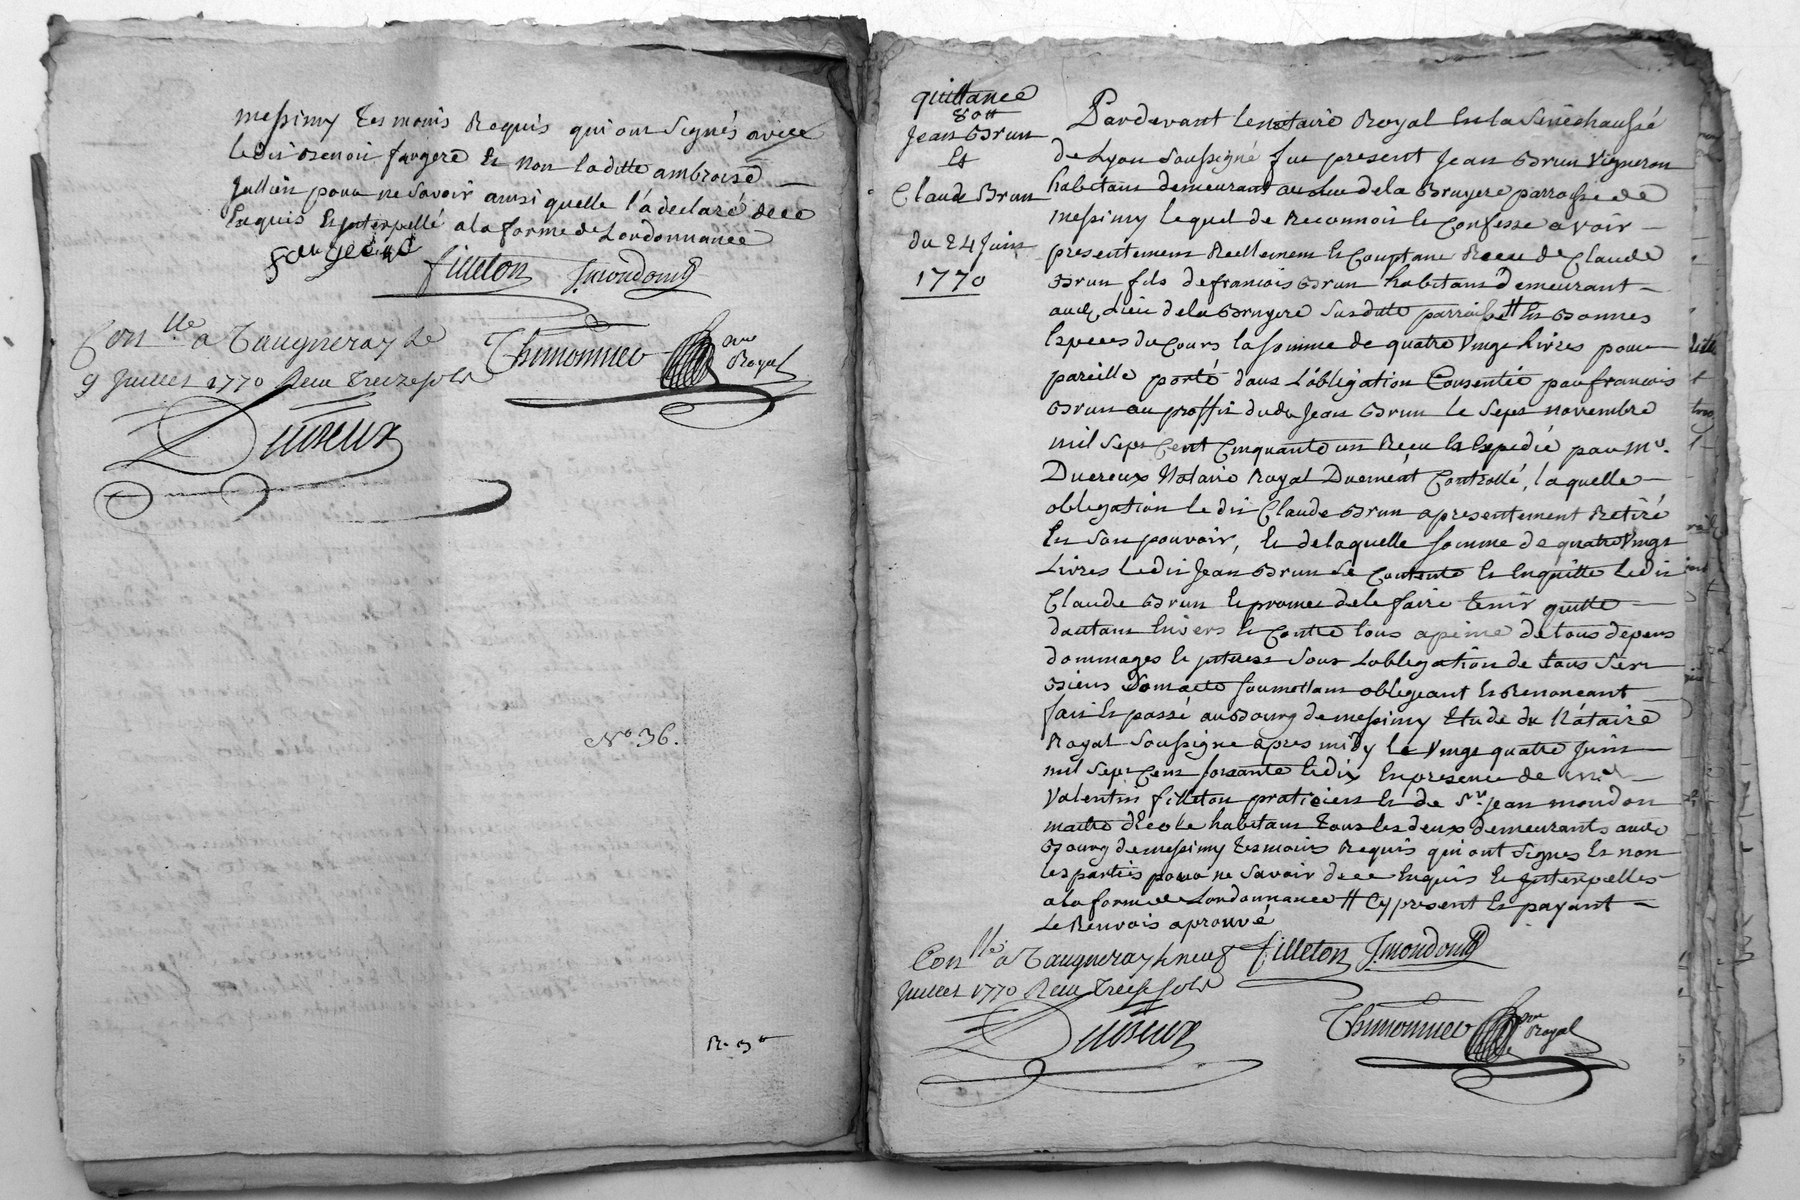 messimy tesmoins Requis qui ont Signés avec
ledit Benoit fargere Et non laditte ambroise
Jullien pour ne savoir ainsi quelle l'a declaré de ce
Enquis Et Interpellé a la forme de Lordonnance
fargere
filleton J. mondon
Con.lle a Vaugneray le
9 Juillet 1770 Recu Treize sols
Thimonnier
Royal
Dutreux
N.o 36.
quittance
Jean Brun
Et
Claude Brun
du 24 Juin
1770
Pardevant le notaire Royal En la Sénéchaussé
de Lyon Soussigné fut present Jean Brun Vigneron
habitant demeurant au lieu de la Bruyere parroisse de
messimy lequel de Reconnoit Et Confesse avoir
presentement Reellement Et Comptant Receu de Claude
Brun fils de francois Brun habitant demeurant
aud. Lieu de la Bruyere Susditte parroisse # En Bonnes
Especes du Cours la somme de quatre Vingt Livres pour
pareille porté dans L'obligation Consentie par francois
Brun au proffit dudit Jean Brun le Sept novembre
mil Sept Cent Cinquante un Recu Et Expedié par M.e
Ducreux Notaire Royal Duement Controllé, laquelle
obligation le dit Claude Brun a presentement Retiré
En Son pouvoir, Et de laquelle somme de quatre Vingt
Livres Ledit Jean Brun Se Contente Et Enquitte Ledit
Claude Brun Et promet de le faire tenir quitte
dautant Envers Et Contre tous a peine de tous depens
dommages Et jnterest Sous Lobligation de tous Ses
Biens Dont acte soumettant obligeant Et Renonceant
fait Et passé au Bourg de messimy Etude du Nótaire
Royal Soussigne apres midy le Vingt quatre Juin
mil Sept Cent soixante Et dix En presence de
Valentin filleton praticien Et de S.r Jean mondon
maitre d'Ecole habitant tous les deux demeurants aud.
Bourg de messimy tesmoins Requis qui ont Signes Et non
les parties pour ne Savoir de ce Enquis Et Interpelles
a la forme de Lordonnance # Cy present Et payant
Le Renvois aprouvé
filleton J. mondon
Con.lle a Vaugneray le neuf
Juillet 1770 Recu treise sols
Thimonnier
Royal
Dutreux